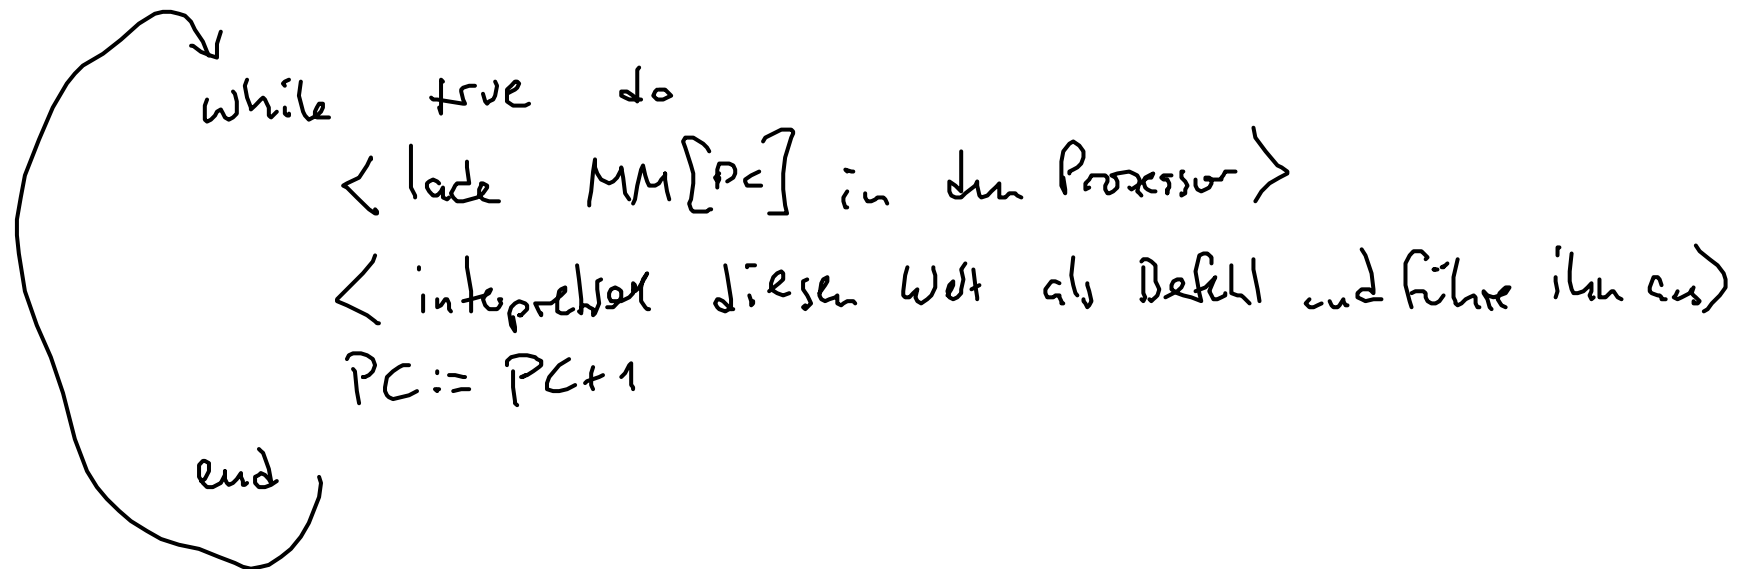 while true do
< lade MM[PC] in den Prozessor >
< interpretiert diesen Wert als Befehl und führe ihn aus >
PC := PC + 1
end